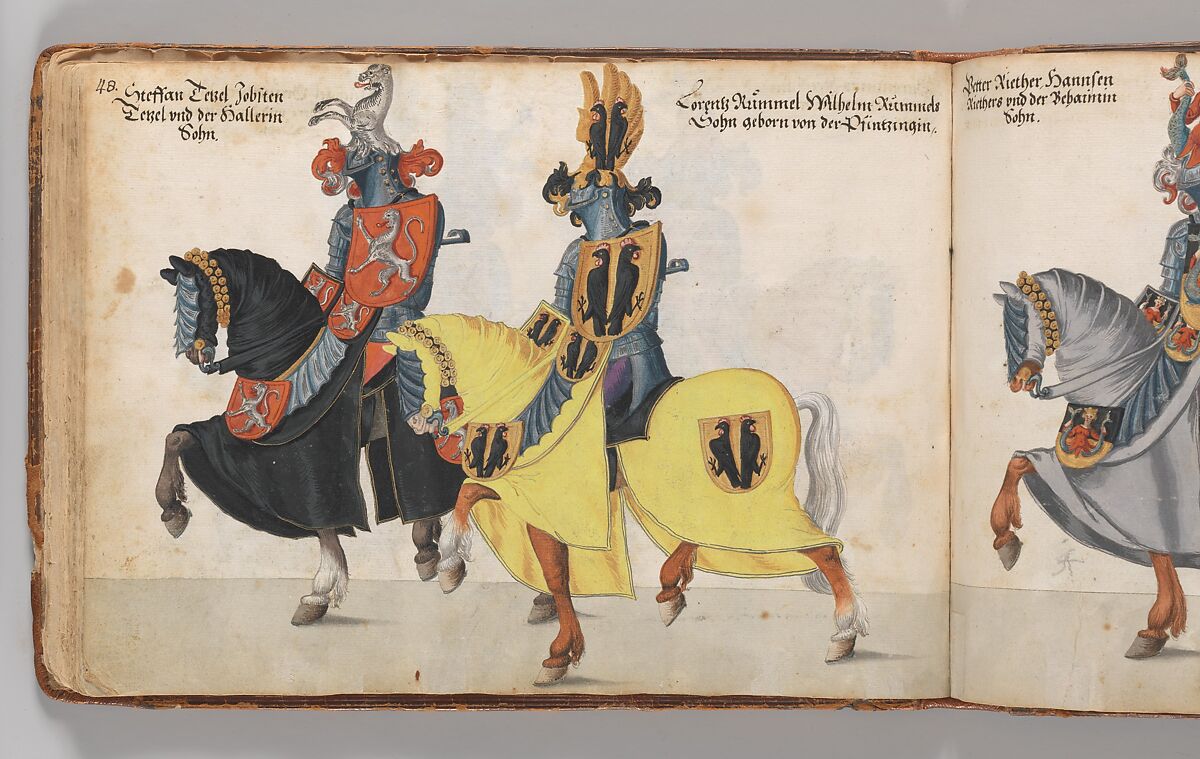 48.
Steffan Tetzel Jobsten
Tetzel vnd der Hallerin
Sohn.
Lorentz Rümmel Wilhelm Rümmels
Sohn geborn von der Pfintzingin.
Petter Riether Hannsen
Riethers vnd der Behaimin
Sohn.